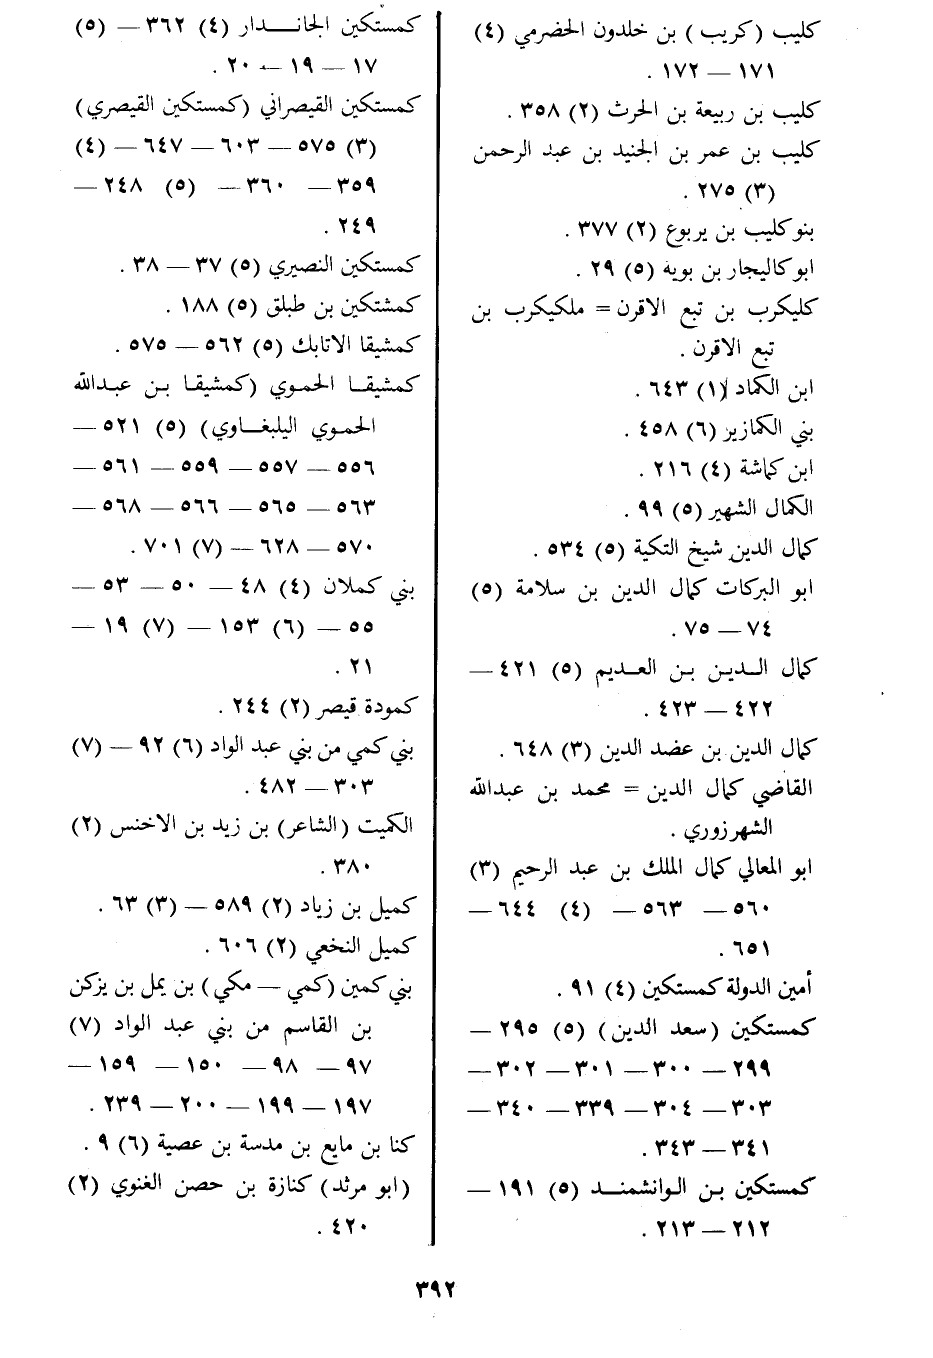 كليب (كريب) بن خلدون الحضرمي (٤)
١٧١ — ١٧٢ .
كليب بن ربيعة بن الحرث (٢) ٣٥٨ .
كليب بن عمر بن الجنيد بن عبد الرحمن
(٣) ٢٧٥ .
بنو كليب بن يربوع (٢) ٣٧٧ .
ابو كاليجار بن بويه (٥) ٢٩ .
كليكرب بن تبع الاقرن = ملكيكرب بن
تبع الاقرن .
ابن الكماد (١) ٦٤٣ .
بني الكمازير (٦) ٤٥٨ .
ابن كماشة (٤) ٢١٦ .
الكمال الشهير (٥) ٩٩ .
كمال الدين شيخ التكية (٥) ٥٣٤ .
ابو البركات كمال الدين بن سلامة (٥)
٧٤ — ٧٥ .
كمال الدين بن العديم (٥) ٤٢١ —
٤٢٢ — ٤٢٣ .
كمال الدين بن عضد الدين (٣) ٦٤٨ .
القاضي كمال الدين = محمد بن عبدالله
الشهرزوري .
ابو المعالي كمال الملك بن عبد الرحيم (٣)
٥٦٠ — ٥٦٣ — (٤) ٦٤٤ —
٦٥١ .
أمين الدولة كمستكين (٤) ٩١ .
كمستكين (سعد الدين) (٥) ٢٩٥ —
٢٩٩ — ٣٠٠ — ٣٠١ — ٣٠٢ —
٣٠٣ — ٣٠٤ — ٣٣٩ — ٣٤٠ —
٣٤١ — ٣٤٣ .
كمستكين بن الوانشمند (٥) ١٩١ —
٢١٢ — ٢١٣ .
كمستكين الجاندار (٤) ٣٦٢ — (٥)
١٧ — ١٩ — ٢٠ .
كمستكين القيصراني (كمستكين القيصري)
(٣) ٥٧٥ — ٦٠٣ — ٦٤٧ — (٤)
٣٥٩ — ٣٦٠ — (٥) ٢٤٨ —
٢٤٩ .
كمستكين النصيري (٥) ٣٧ — ٣٨ .
كمشتكين بن طبلق (٥) ١٨٨ .
كمشيقا الاتابك (٥) ٥٦٢ — ٥٧٥ .
كمشيقا الحموي (كمشيقا بن عبدالله
الحموي اليلبغاوي) (٥) ٥٢١ —
٥٥٦ — ٥٥٧ — ٥٥٩ — ٥٦١ —
٥٦٣ — ٥٦٥ — ٥٦٦ — ٥٦٨ —
٥٧٠ — ٦٢٨ — (٧) ٧٠١ .
بني كملان (٤) ٤٨ — ٥٠ — ٥٣ —
٥٥ — (٦) ١٥٣ — (٧) ١٩ —
٢١ .
كمودة قيصر (٢) ٢٤٤ .
بني كمي من بني عبد الواد (٦) ٩٢ — (٧)
٣٠٣ — ٤٨٢ .
الكميت (الشاعر) بن زيد بن الاخنس (٢)
٣٨٠ .
كميل بن زياد (٢) ٥٨٩ — (٣) ٦٣ .
كميل النخعي (٢) ٦٠٦ .
بني كمين (كمي — مكي) بن يمل بن يزكن
بن القاسم من بني عبد الواد (٧)
٩٧ — ٩٨ — ١٥٠ — ١٥٩ —
١٩٧ — ١٩٩ — ٢٠٠ — ٢٣٩ .
كنا بن مايع بن مدسة بن عصية (٦) ٩ .
(ابو مرثد) كنازة بن حصن الغنوي (٢)
٤٢٠ .
٣٩٢